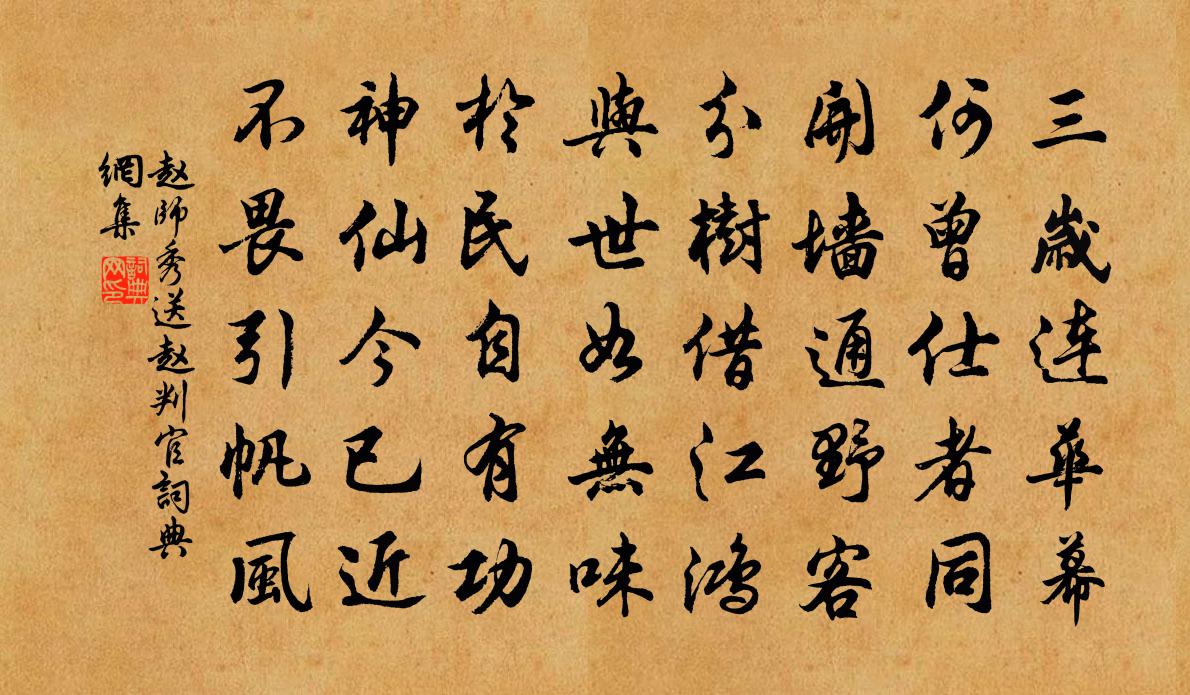 三歲連華幕
何曾仕者同
開墻通野客
分樹借江鴻
與世如無味
於民自有功
神仙今已近
不畏引帆風
赵師秀送赵判官詞典
網集
詞典
网印